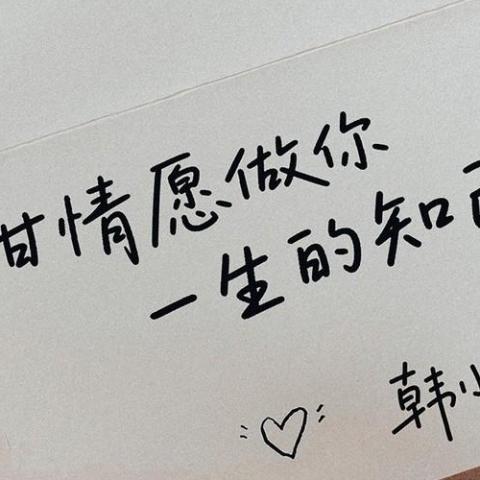 甘情愿做你
一生的知
韩